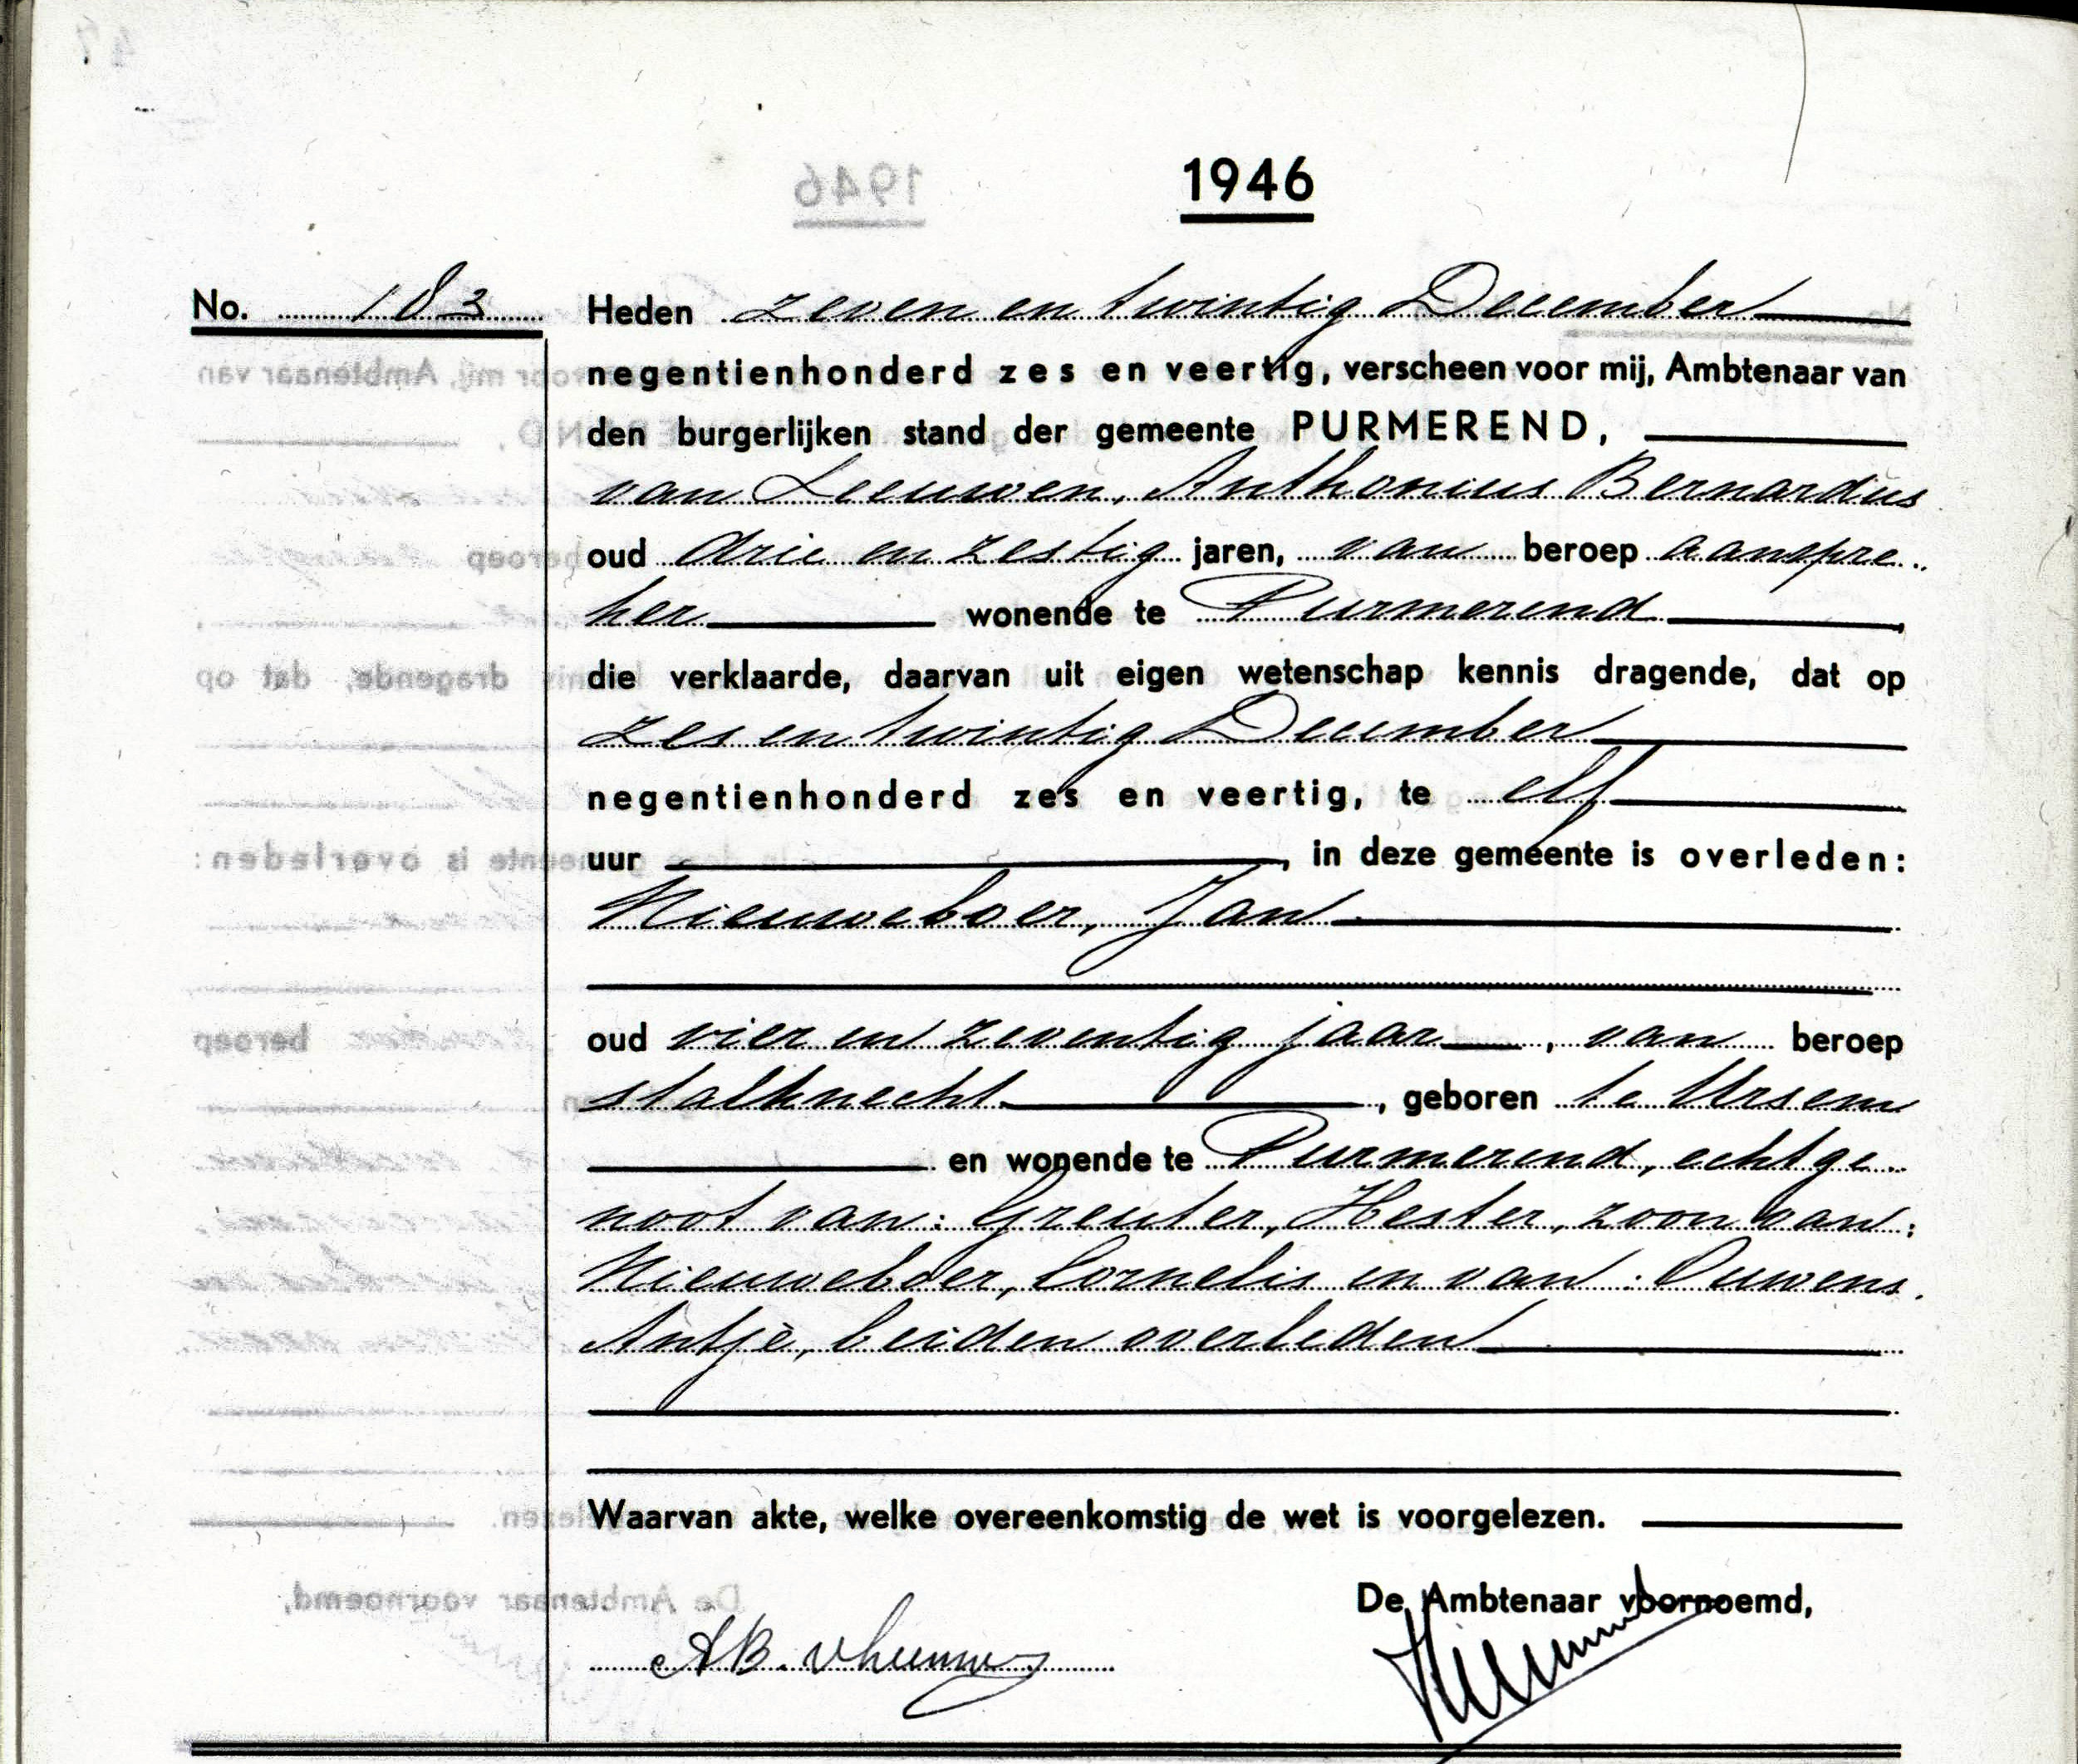 1946
No. 183
Heden zeven en twintig December
negentienhonderd zes en veertig, verscheen voor mij, Ambtenaar van
den burgerlijken stand der gemeente PURMEREND,
van Leeuwen, Anthonius Bernardus
oud drie en zestig jaren, van beroep aanspre
ker wonende te Purmerend,
die verklaarde, daarvan uit eigen wetenschap kennis dragende, dat op
zes en twintig December
negentienhonderd zes en veertig, te elf
uur , in deze gemeente is overleden:
Nieuweboer, Jan
oud vier en zeventig jaar, van beroep
stalknecht, geboren te Ursem
en wonende te Purmerend, echtge
noot van: Greuter, Hester, zoon van:
Nieuweboer, Cornelis en van: Ouwens,
Antje, beiden overleden
Waarvan akte, welke overeenkomstig de wet is voorgelezen.
De Ambtenaar voornoemd,
AB. v